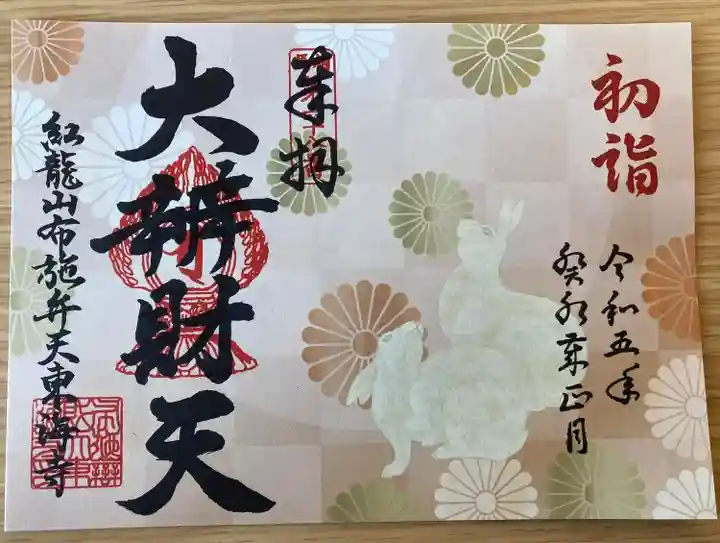 初詣
令和五年
癸卯歳正月
奉拝
大辨財天
紅龍山布施弁天東海寺